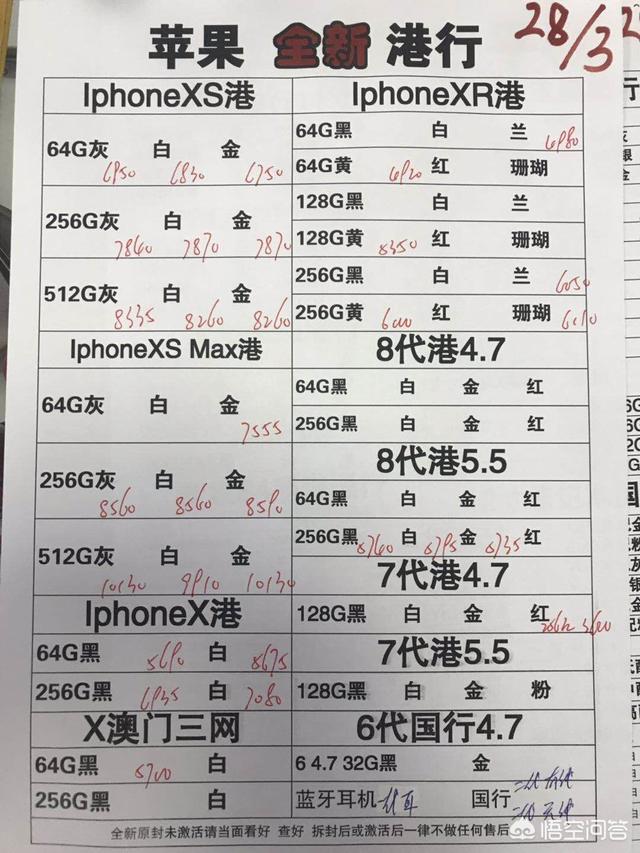 苹果 全新 港行 28/3
IphoneXS港
64G灰 白 金
6950 6830 6750
256G灰 白 金
7840 7870 7870
512G灰 白 金
8335 8260 8260
IphoneXS Max港
64G灰 白 金
7555
256G灰 白 金
8560 8560 8590
512G灰 白 金
10130 9910 10130
IphoneX港
64G黑 5690 白 5675
256G黑 6935 白 7080
X澳门三网
64G黑 5700 白
256G黑 白
IphoneXR港
64G黑 白 兰
64G黄 红 珊瑚
128G黑 白 兰
128G黄 红 珊瑚
256G黑 白 兰 6050
256G黄 红 珊瑚
8代港4.7
64G黑 白 金 红
256G黑 白 金 红
8代港5.5
64G黑 白 金 红
256G黑 白 金 红
7代港4.7
128G黑 白 金 红
7代港5.5
128G黑 白 金 粉
6代国行4.7
6 4.7 32G黑 金
蓝牙耳机 国行
全新原封未激活请当面看好 查好 拆封后或激活后一律不做任何售后
悟空问答